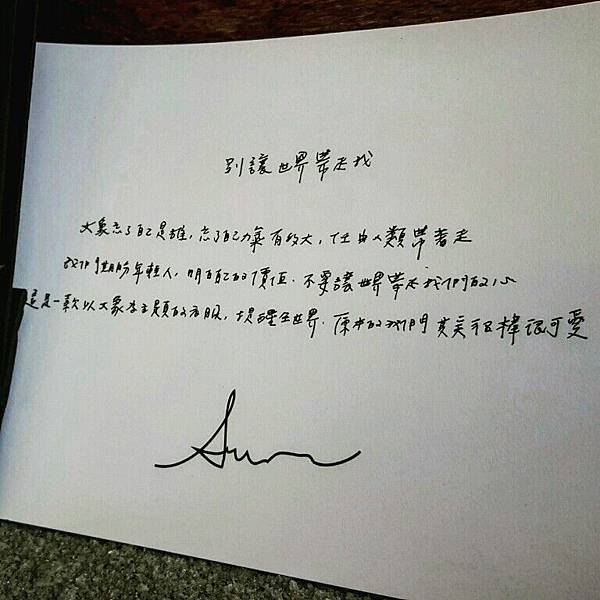 別讓世界帶走我
大象忘了自己是誰，忘了自己力氣有多大，任由人類帶著走
我們期盼年輕人，明白自己的價值．不要讓世界帶走我們的心
這是一款以大象為主題的衣服，提醒全世界．原本的我們其實很棒很可愛
Sun